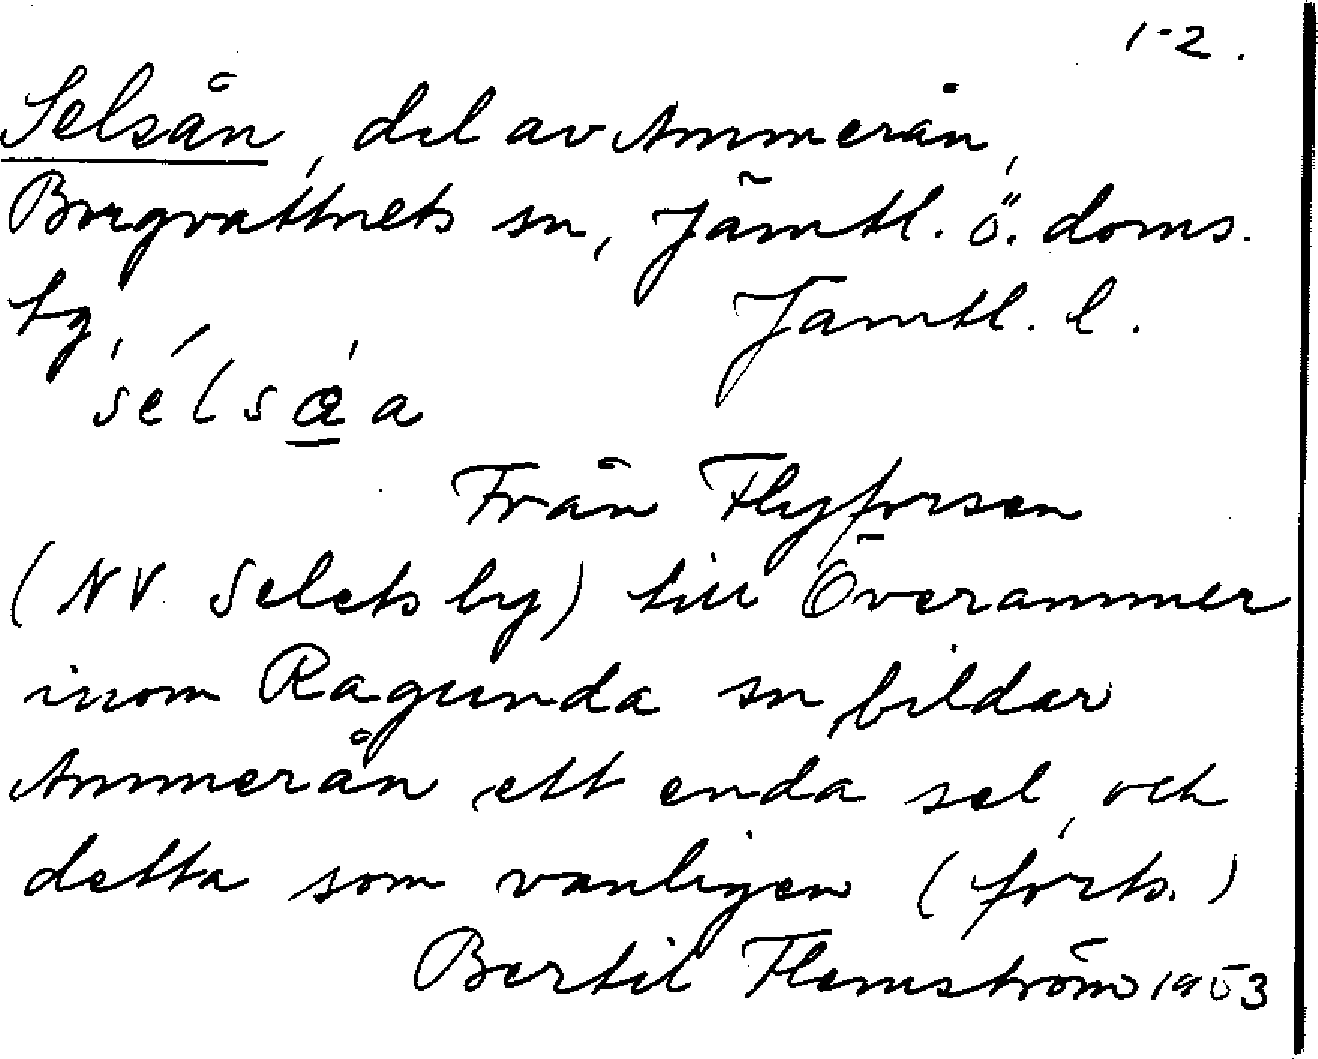 1-2.
Selsån, del av Ammerån,
Borgvattnets sn, Jämtl. ö. doms.
Jämtl. l.
Från Flyforsen
(NV Selets by) till Överammer
inom Ragunda sn bildar
Ammerån ett enda sel, och
detta som vanligen (forts.)
Bertil Flemström 1953